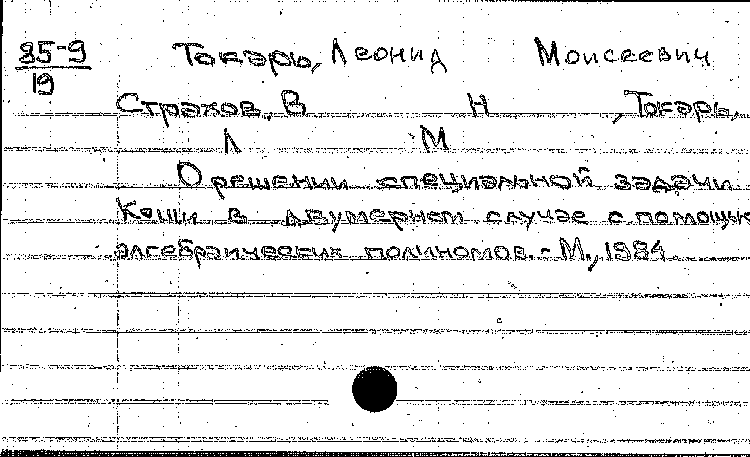 85-9 Токарь, Леонид Моисеевич
19
Страхов, В Н , Токарь,
Л М
О решении специальной задачи
Коши в двумерном случае с помощью
алгебраических полиномов. - М., 1984